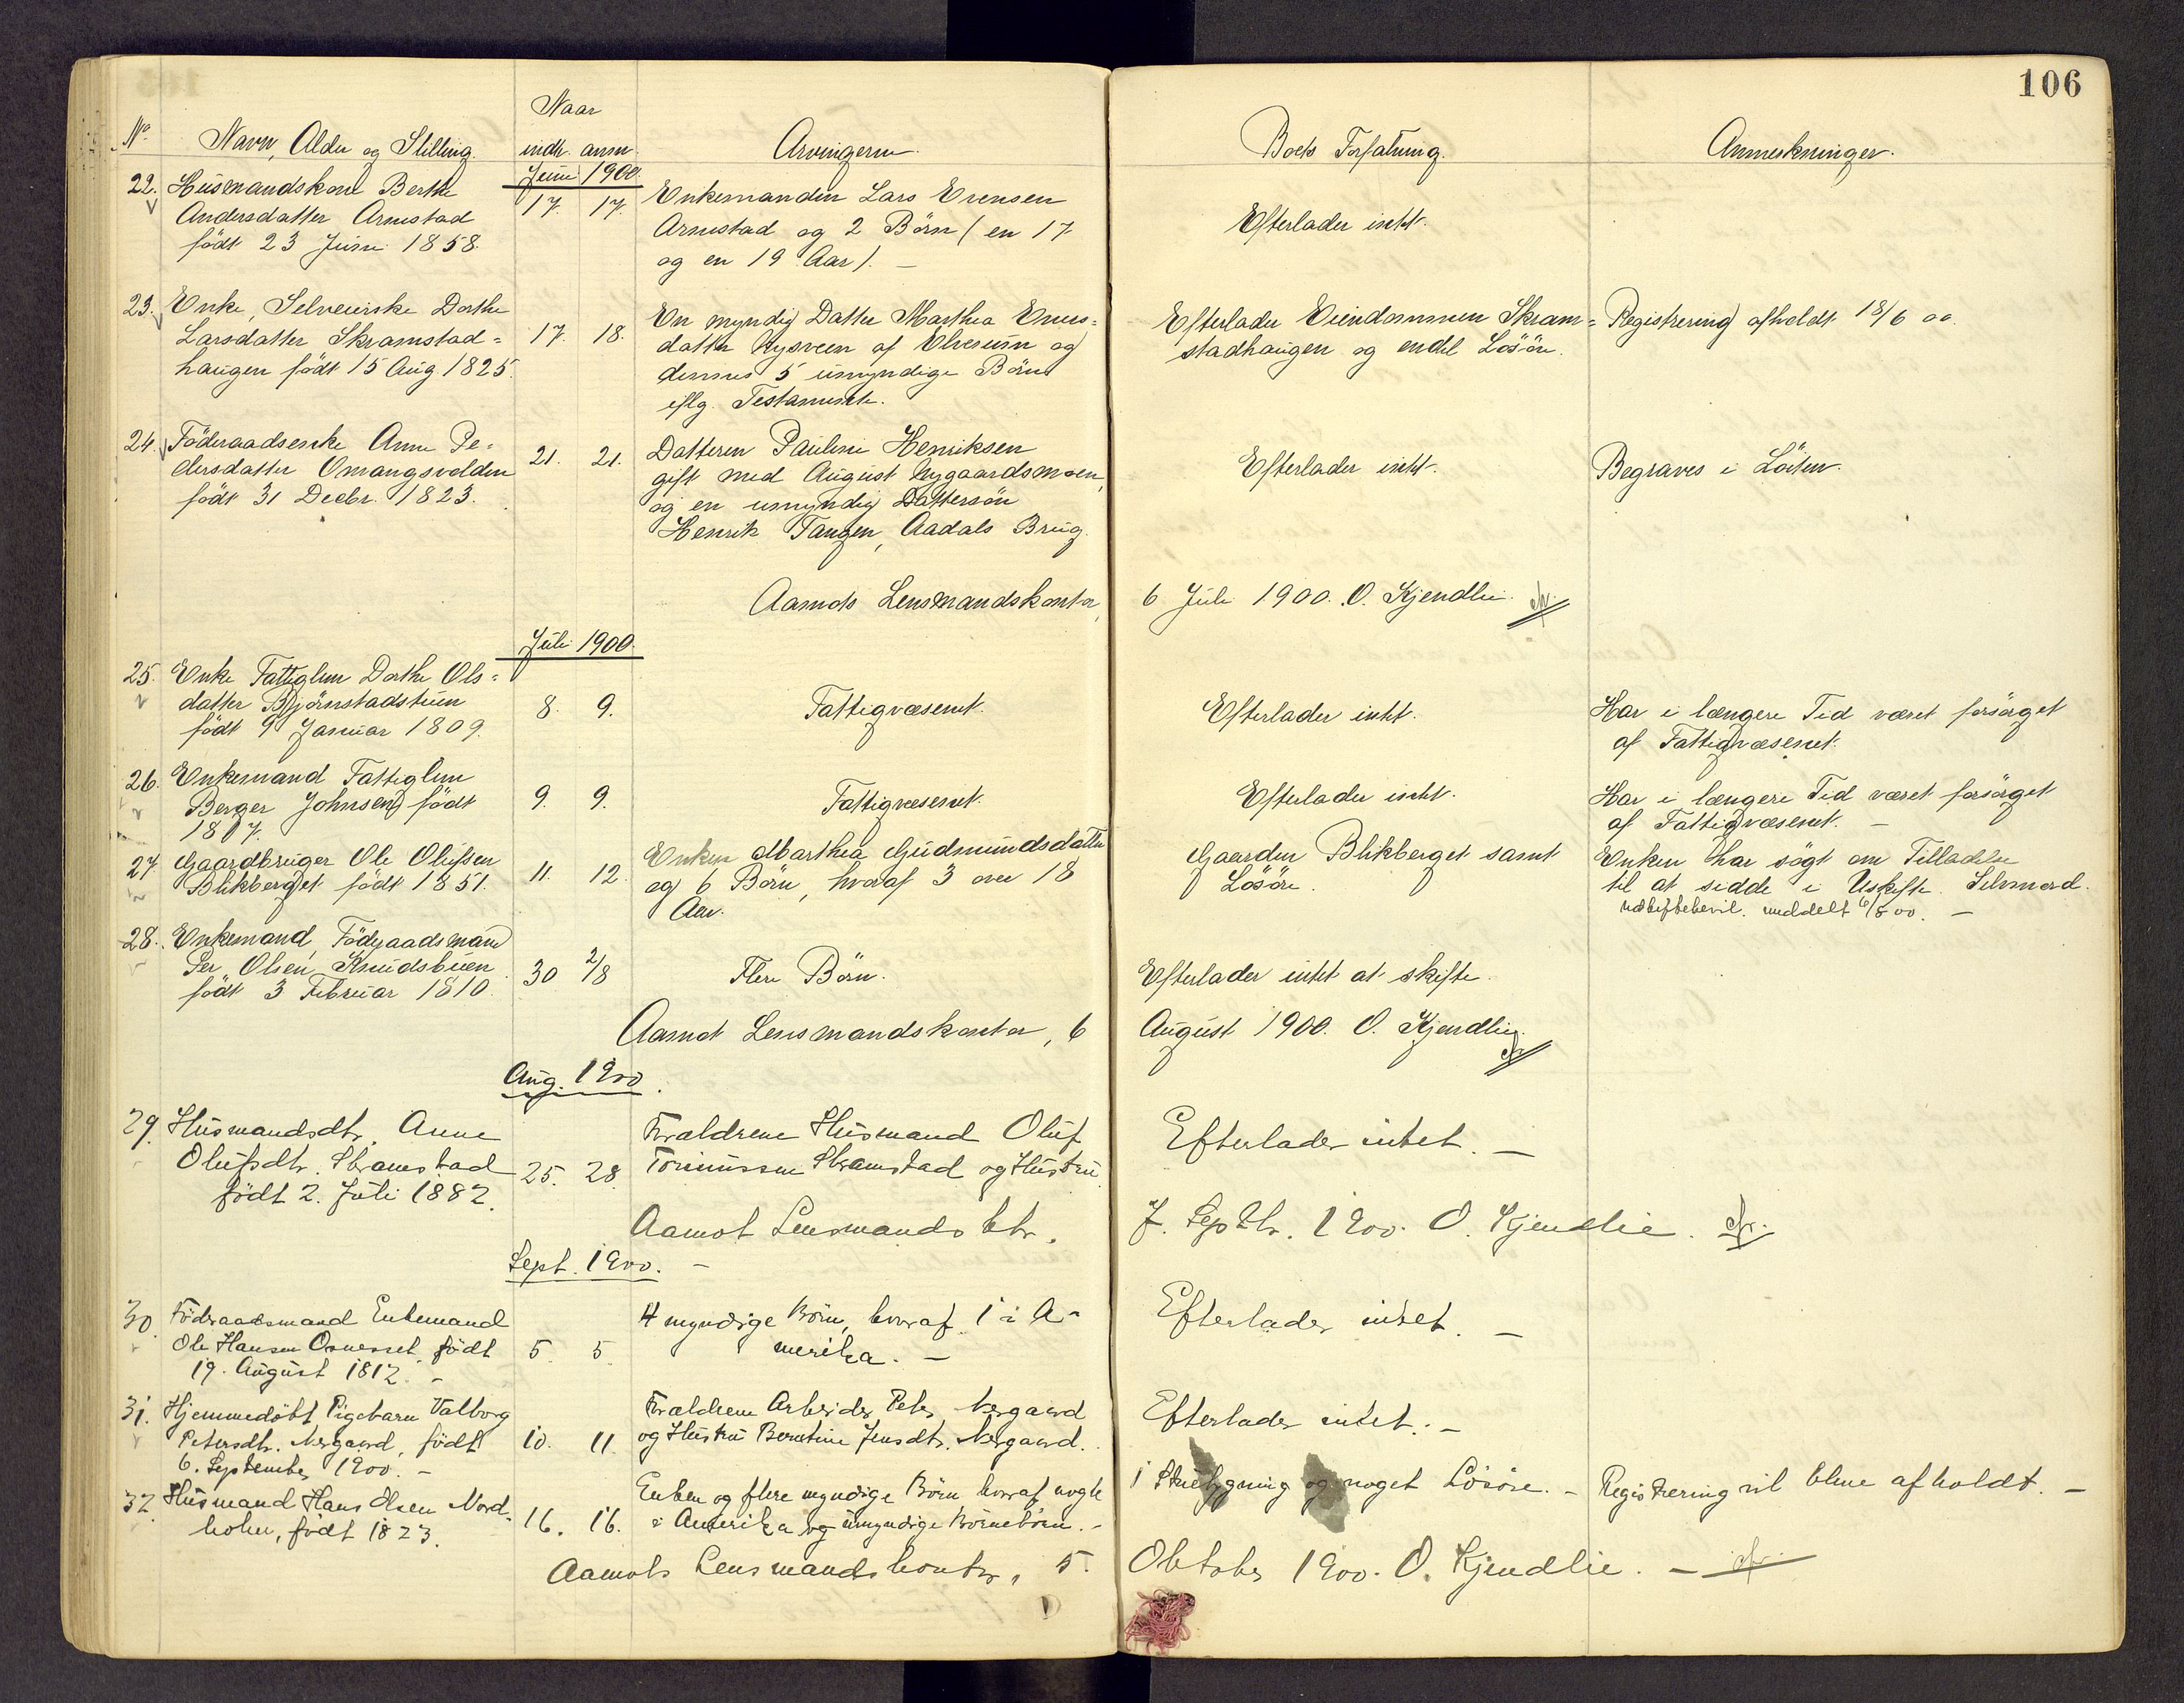 106
Naar
No. Navn, Alder og Stilling. indtr. anm. Arvingerne. Boets Forfatning. Anmerkninger.
Juni 1900.
22. Husmandskone Berthe
Andersdatter Arnestad
født 23 Juni 1858.
17. 17.
Enkemanden Lars Evensen
Arnestad og 2 Börn (en 17
og en 19 Aar). –
Efterlader intet.
23. Enke, Selveierske Dorthe
Larsdatter Skramstad=
haugen født 15 Aug 1825.
17. 18.
En myndig Datter Marthea Eners=
datter Nysveen af Elverum og
dennes 5 umyndige Börn
iflg. Testamente.
Efterlader Eiendommen Skram=
stadhaugen og endel Lösöre.
Registrering afholdt 18/6 00.
24. Föderaadsenke Anne Pe=
dersdatter Omangsvolden
født 31 Decbr. 1823.
21. 21.
Datteren Pauline Henriksen
gift med August Nygaardsmoen,
og en umyndig Dattersön
Henrik Tangen, Aadals Brug.
Efterlader intet.
Begraves i Löiten.
Aamots Lensmandskontor, 6 Juli 1900. O. Kjendlie.
Juli 1900.
25. Enke Fattiglem Dorthe Ols=
datter Björnstadstuen
født 9 Januar 1809.
8. 9.
Fattigvæsenet.
Efterlader intet.
Har i længere Tid været forsörget
af Fattigvæsenet.
26. Enkemand Fattiglem
Berger Johnsen født
1817.
9. 9.
Fattigvæsenet.
Efterlader intet.
Har i længere Tid været forsörget
af Fattigvæsenet. –
27. Gaardbruger Ole Olufsen
Blikberget født 1851.
11. 12.
Enken Marthea Gudmundsdatter
og 6 Börn, hvoraf 3 over 18
Aar.
Gaarden Blikberget samt
Lösöre.
Enken har sögt om Tilladelse
til at sidde i Uskifte. Selvmord.
meddelt 6/8 00. –
28. Enkemand, Föderaadsmand
Per Olsen Knudsbuen
født 3 Februar 1810.
30 2/8
Flere Börn.
Efterlader intet at skifte.
Aamot Lensmandskontor, 6 August 1900. O. Kjendlie.
Aug. 1900.
29. Husmandsdtr. Anne
Olufsdtr. Skramstad
født 2. Juli 1882.
25. 28.
Forældrene Husmand Oluf
Skramstad og Hustru.
Efterlader intet. –
Aamot Lensmandsktr. 7. Septbr. 1900. O. Kjendlie.
Sept. 1900. –
30. Föderaadsmand Enkemand
Ole Hansen Osneset født
19. August 1812. –
5. 5.
4 myndige Börn, hvoraf 1 i A-
merika. –
Efterlader intet. –
31. Hjemmedöbt Pigebarn Valborg
Petersdtr. Nergaard, født
6. September 1900. –
10. 11.
Forældrene Arbeider Peter Nergaard
og Hustru Berntine Jensdtr. Nergaard.
Efterlader intet. –
32. Husmand Hans Olsen Nord-
holen, født 1823.
16. 16.
Enken og flere myndige Börn hvoraf nogle
i Amerika og umyndige Börnebörn. –
1 og noget Lösöre. –
Registrering vil blive afholdt. –
Aamots Lensmandskontor, 5. Oktober 1900. O. Kjendlie. –